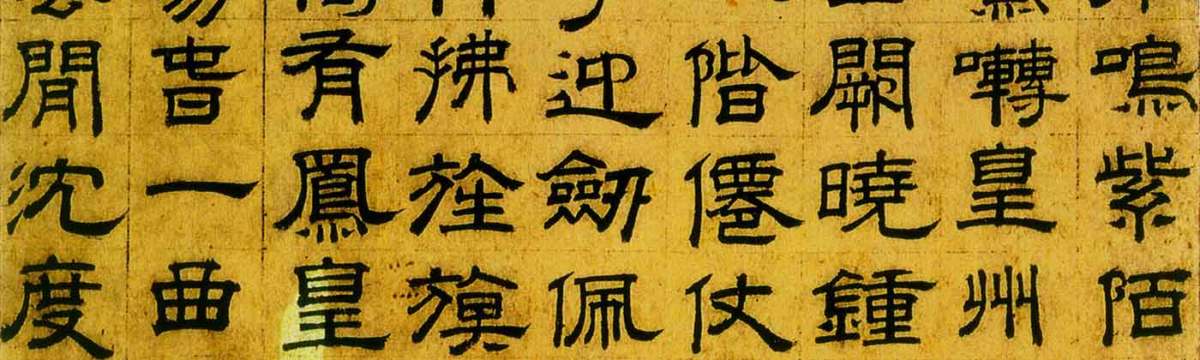 鳴紫陌
囀皇州
闕曉鍾
階僊仗
迎劒佩
拂旌旗
有鳳皇
旾一曲
閒沈度